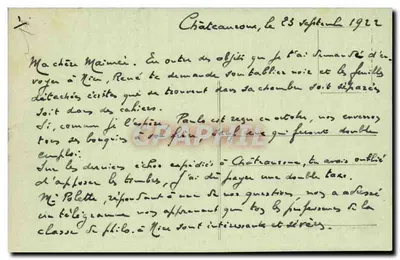 Châteauroux, le 23 septembre 1922
Ma chère Mainée. En outre des objets que je t'ai demandé d'en-
voyer à Nice, René te demande son tablier noir et les feuilles
détachées écrites qui se trouvent dans sa chambre soit séparées
soit dans des cahiers.
Si, comme je l'espère, Paulo est reçu en octobre, nous enverrons
tous ses bouquins à son frère, de ceux qui feront double
emploi.
Sur les derniers échos expédiés à Châteauroux, tu avais oublié
d'apposer les timbres, j'ai dû payer une double taxe.
Mr Polette, répondant à une de nos questions, nous a adressé
un télégramme nous apprenant que tous les professeurs de la
classe de philo. à Nice sont intéressants et sévères.
CPAPHIL